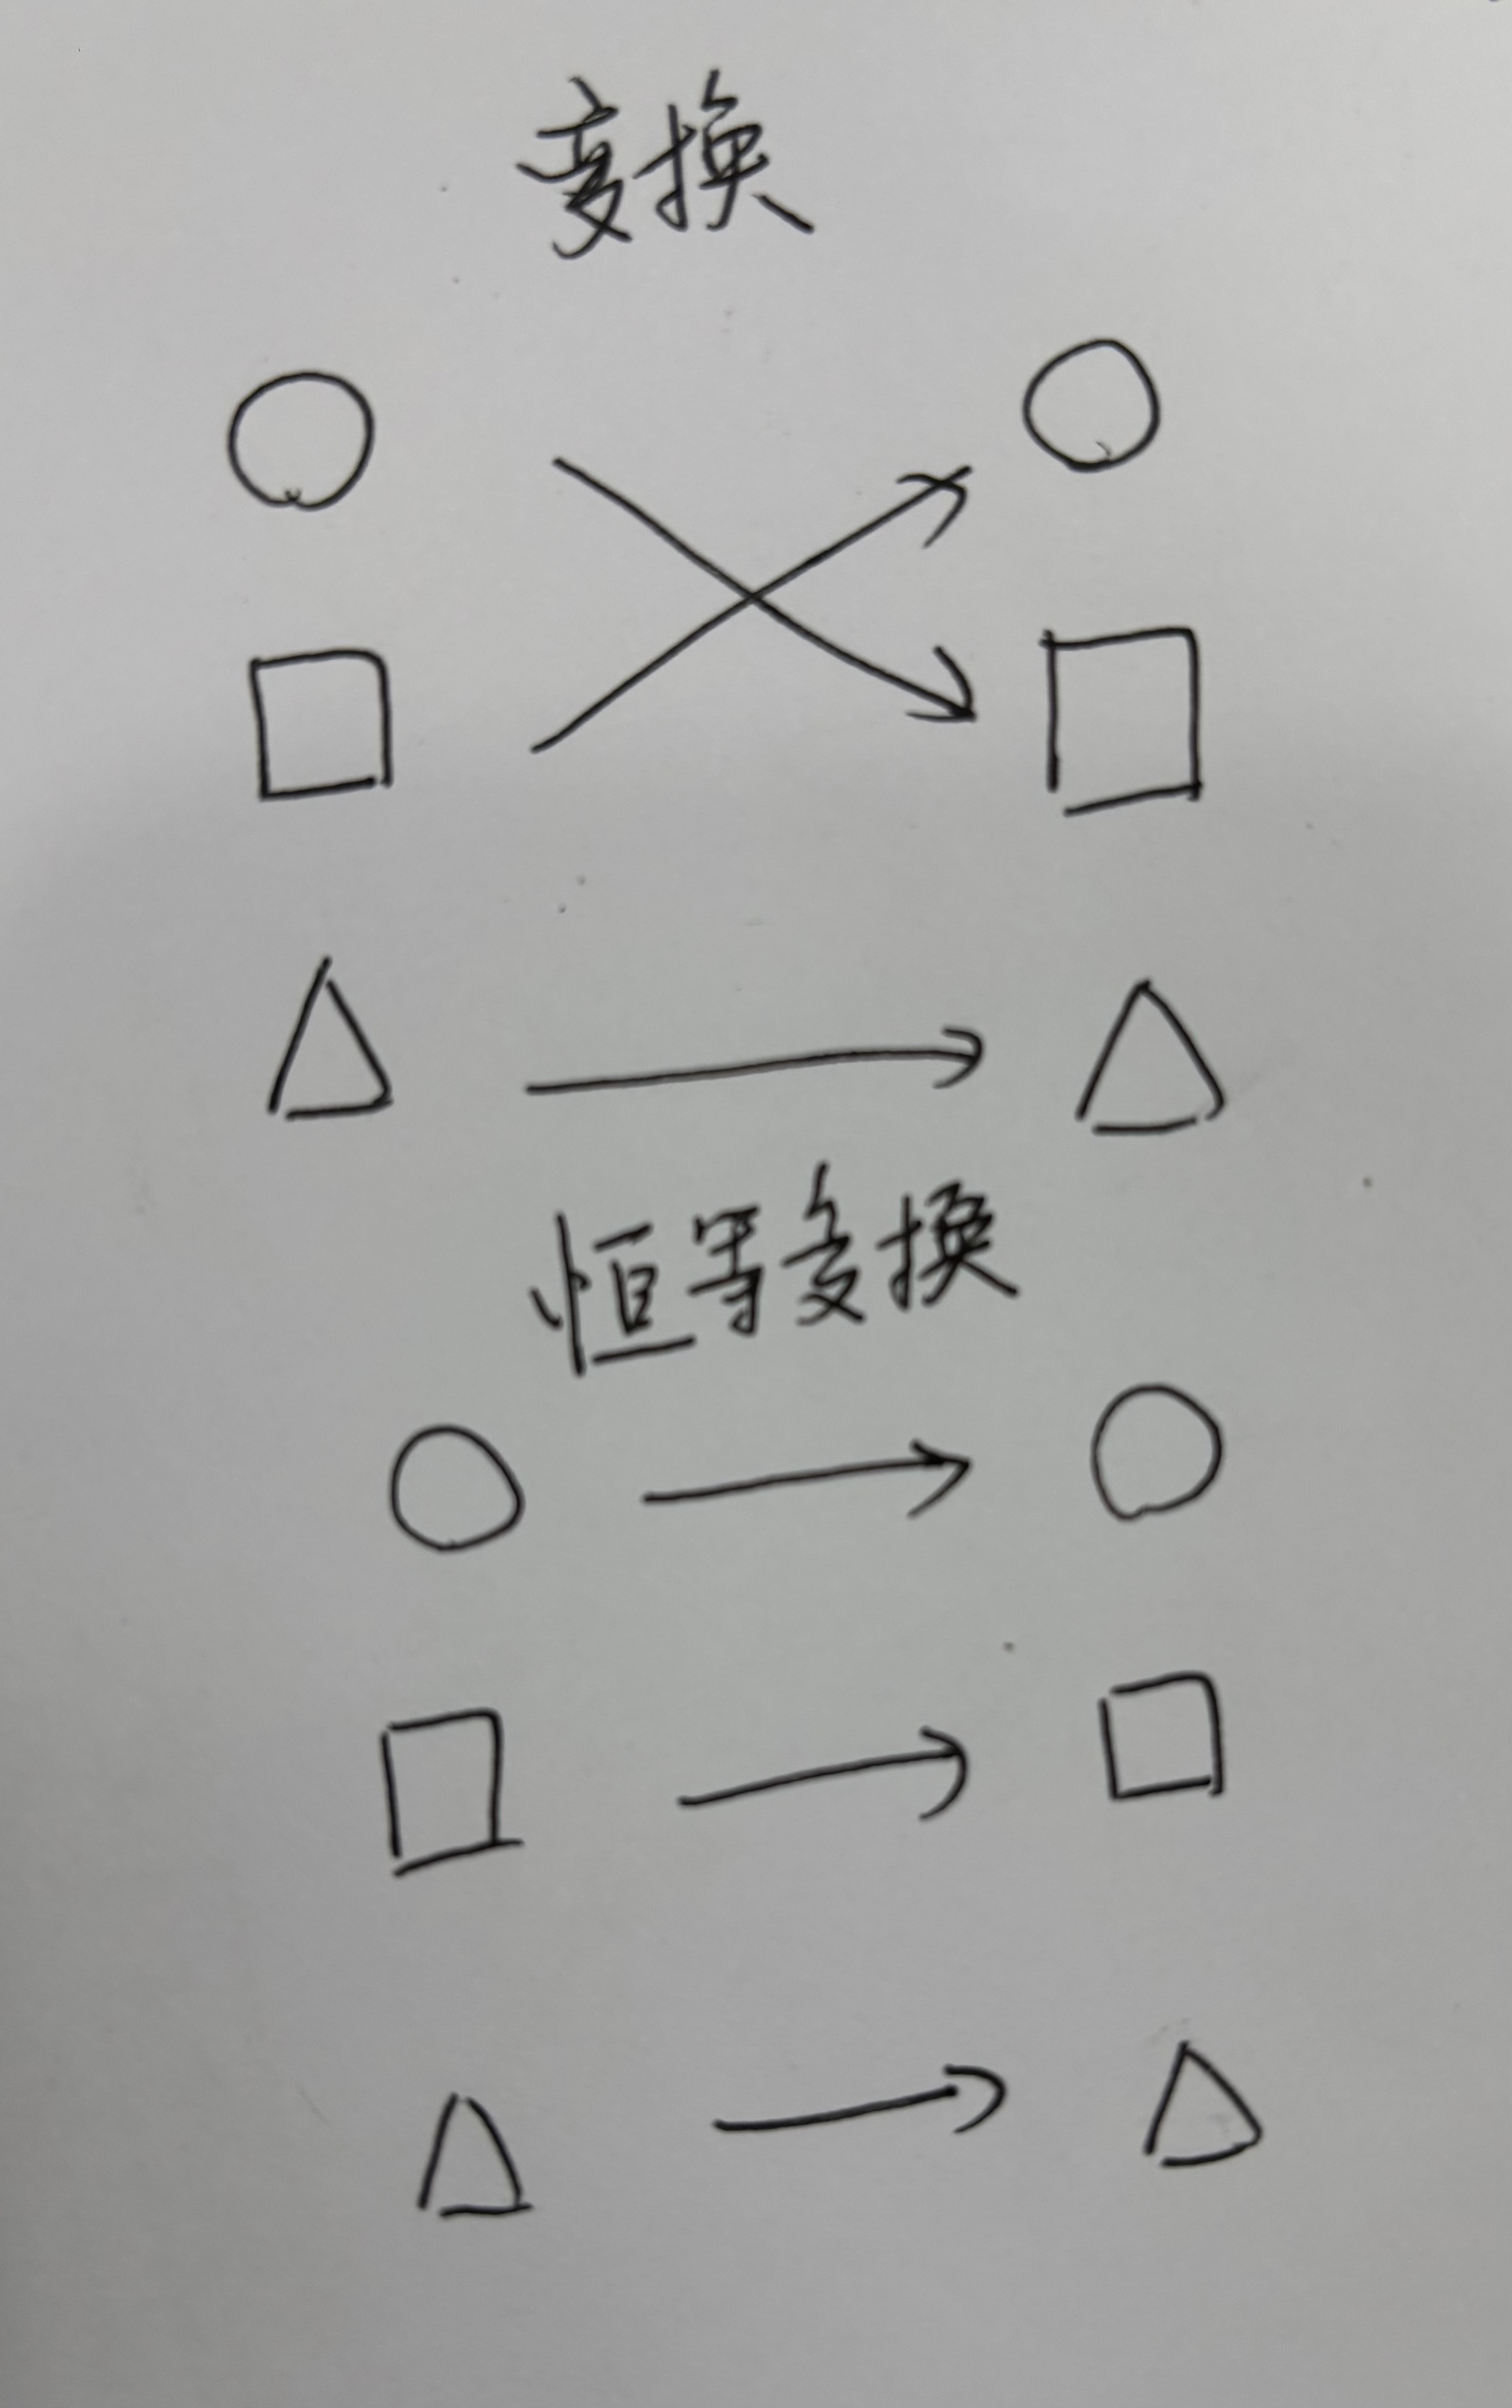 变换
恒等变换